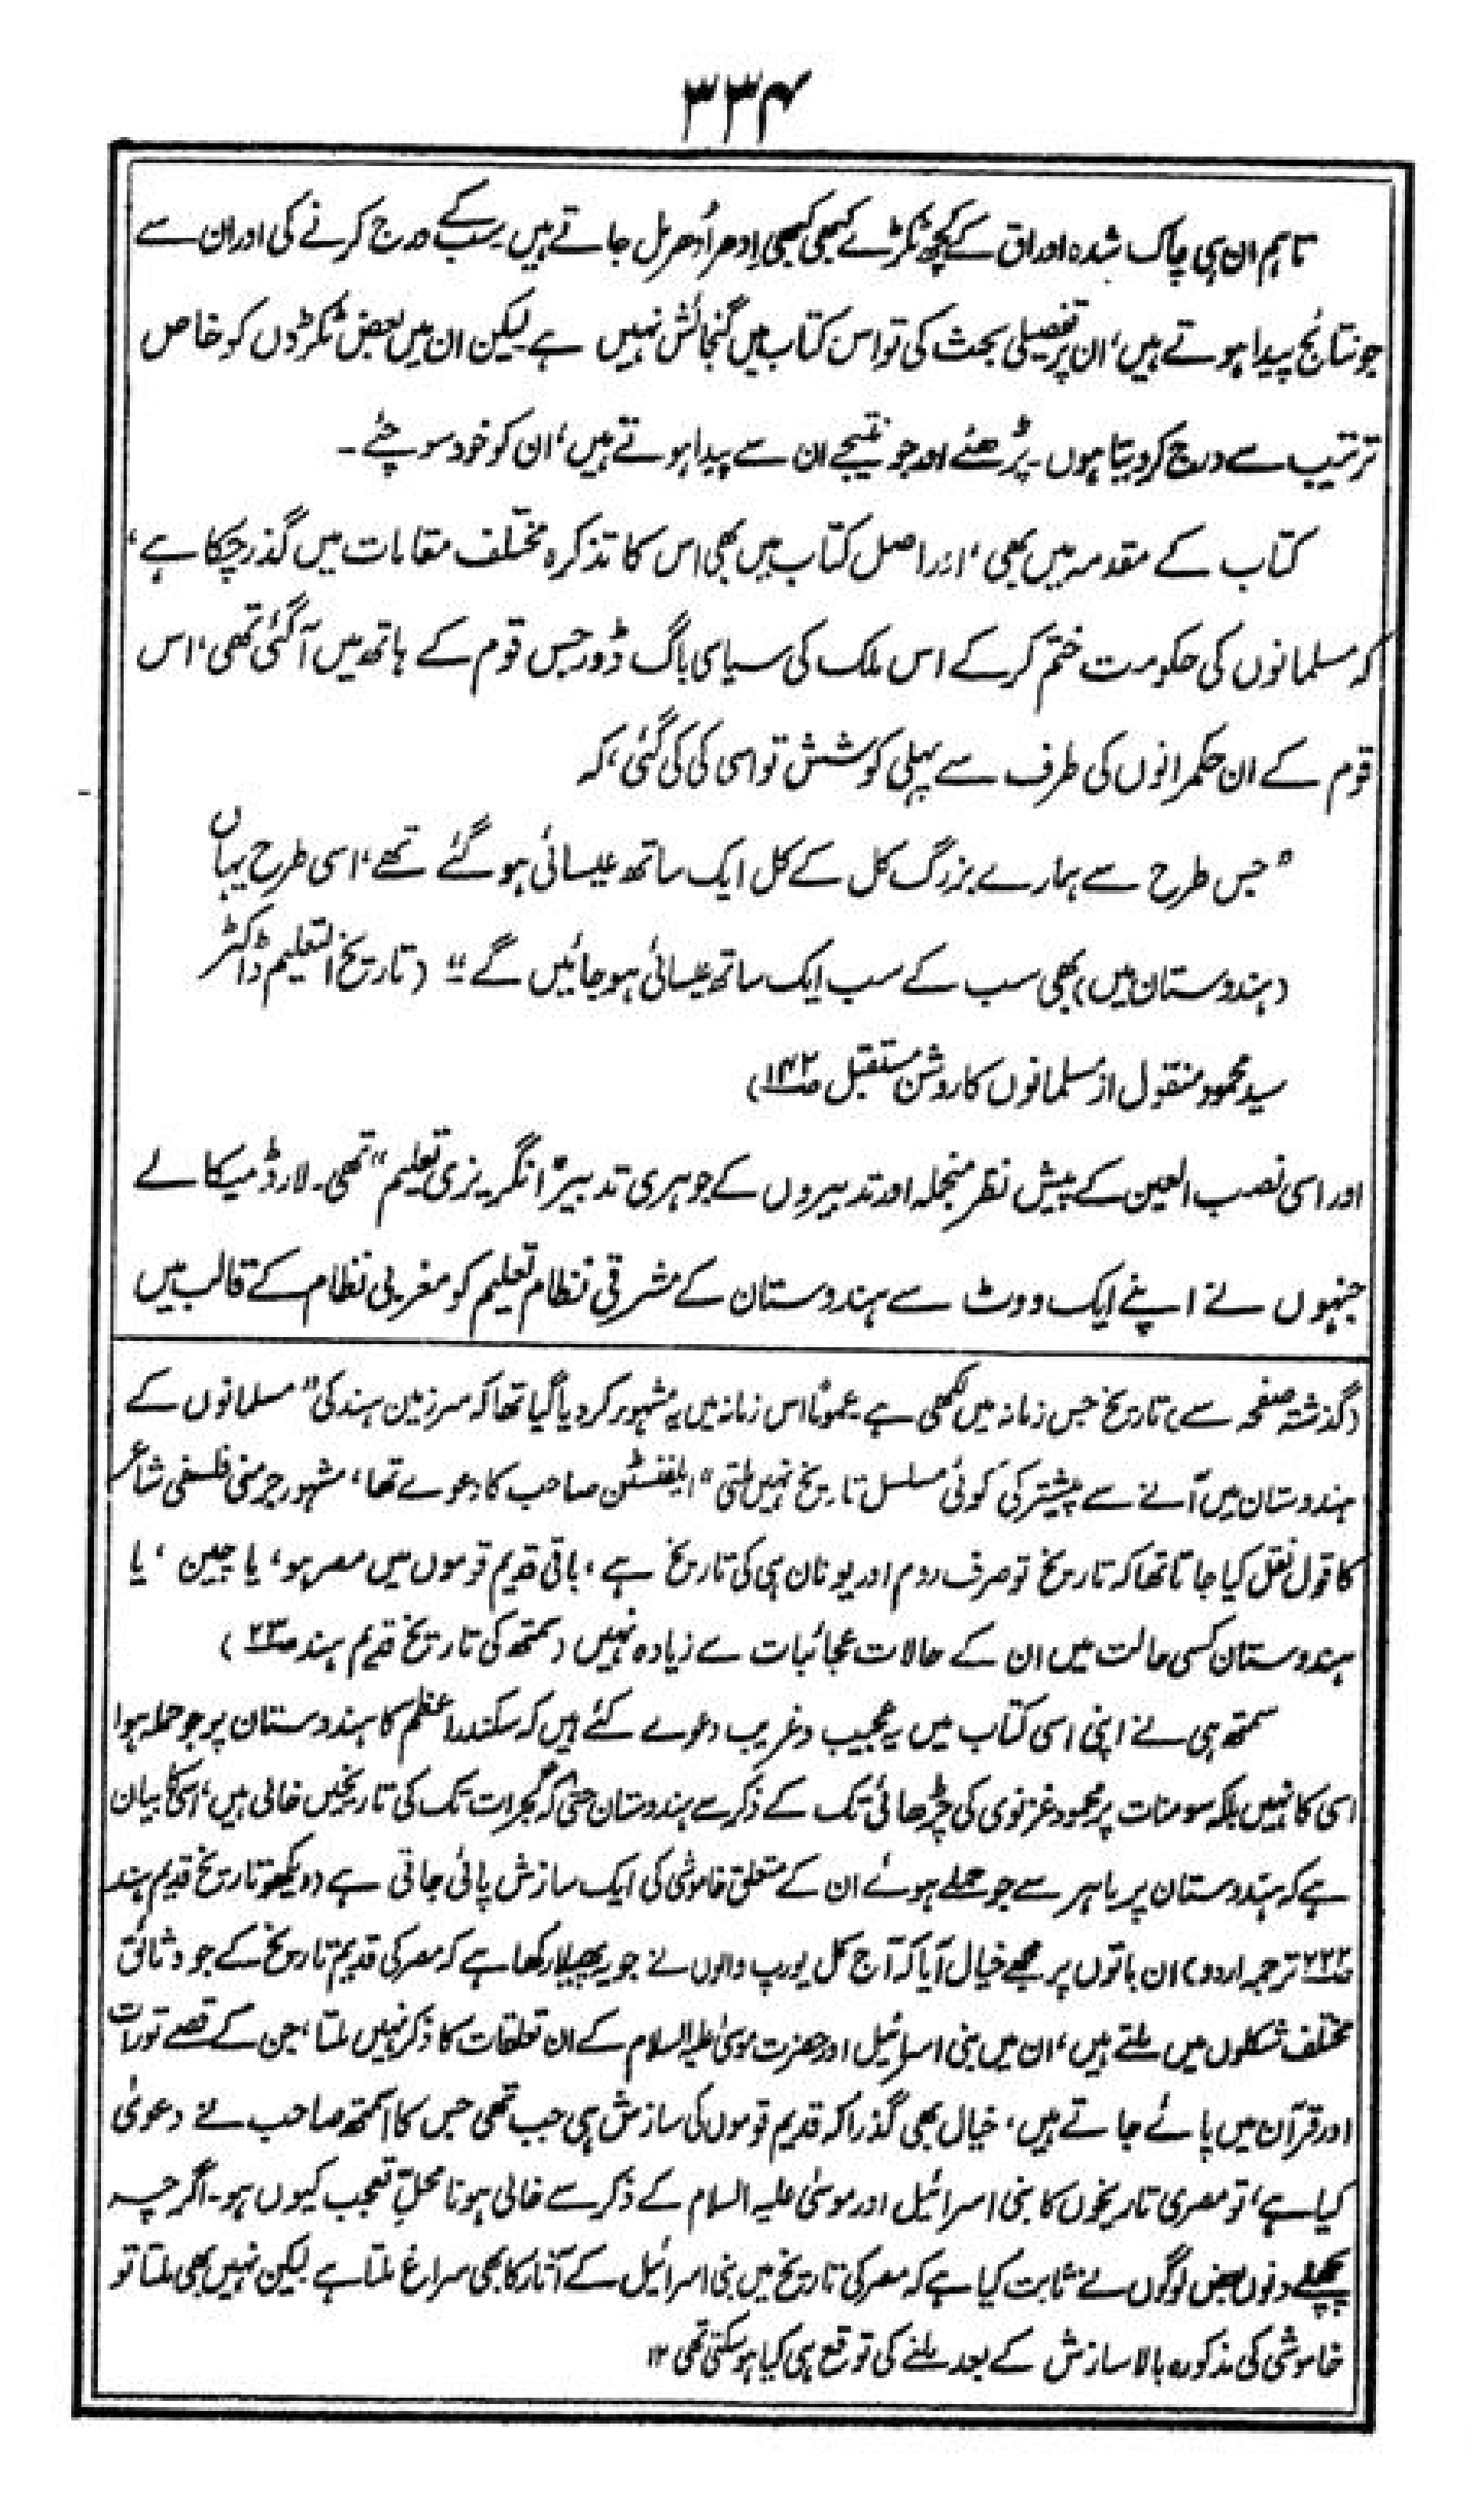 ۳۳۴
تاہم ان ہی چاک شدہ اوراق کے کچھ ٹکڑے کبھی کبھی اِدھر اُدھر مل جاتے ہیں۔ سب کے درج کرنے کی اور ان سے
جو نتائج پیدا ہوتے ہیں، ان پر تفصیلی بحث کی تو اس کتاب میں گنجائش نہیں ہے۔ لیکن ان میں بعض ٹکڑوں کو خاص
ترتیب سے درج کر دیتا ہوں۔ پڑھئے اور جو نتیجے ان سے پیدا ہوتے ہیں، ان کو خود سوچئے۔
کتاب کے مقدمہ میں بھی، اور اصل کتاب میں بھی اس کا تذکرہ مختلف مقامات میں گذر چکا ہے،
کہ مسلمانوں کی حکومت ختم کر کے اس ملک کی سیاسی باگ ڈور جس قوم کے ہاتھ میں آ گئی تھی، اس
قوم کے ان حکمرانوں کی طرف سے پہلی کوشش تو اسی کی کی گئی، کہ
"جس طرح سے ہمارے بزرگ کل کے کل ایک ساتھ عیسائی ہو گئے تھے، اسی طرح یہاں
(ہندوستان میں) بھی سب کے سب ایک ساتھ عیسائی ہو جائیں گے" (تاریخ التعلیم ڈاکٹر
سید محمود منقول از مسلمانوں کا روشن مستقبل ص۱۴۲)
اور اسی نصب العین کے پیش نظر منجملہ اور تدبیروں کے جوہری تدبیر "انگریزی تعلیم" تھی۔ لارڈ میکالے
جنہوں نے اپنے ایک ووٹ سے ہندوستان کے مشرقی نظام تعلیم کو مغربی نظام کے قالب میں
(گذشتہ صفحہ سے) تاریخ جس زمانہ میں لکھی ہے عموماً اس زمانہ میں یہ مشہور کر دیا گیا تھا کہ سرزمین ہند کی "مسلمانوں کے
ہندوستان میں آنے سے پیشتر کی کوئی مسلسل تاریخ نہیں ملتی" الفنسٹن صاحب کا دعوے تھا، مشہور جرمنی فلسفی شاعر
کا قول نقل کیا جاتا تھا کہ تاریخ تو صرف روم اور یونان ہی کی تاریخ ہے، باقی قدیم قوموں میں مصر ہو، یا چین، یا
ہندوستان کسی حالت میں ان کے حالات عجائبات سے زیادہ نہیں (سمتھ کی تاریخ قدیم ہند ص۲۳)
سمتھ ہی نے اپنی اسی کتاب میں یہ عجیب و غریب دعوے کئے ہیں کہ سکندر اعظم کا ہندوستان پر جو حملہ ہوا
اسی کا نہیں بلکہ سومنات پر محمود غزنوی کی چڑھائی تک کے ذکر سے ہندوستان حتیٰ کہ گجرات تک کی تاریخیں خالی ہیں، اسکا بیان
ہے کہ ہندوستان پر باہر سے جو حملے ہوئے ان کے متعلق خاموشی کی ایک سازش پائی جاتی ہے (دیکھو تاریخ قدیم ہند
ص۲۲۲ ترجمہ اردو) ان باتوں پر مجھے خیال آیا کہ آج کل یورپ والوں نے جو یہ پھیلا رکھا ہے کہ مصر کی قدیم تاریخ کے جو وثائق
مختلف شکلوں میں ملتے ہیں، ان میں بنی اسرائیل اور حضرت موسیٰ علیہ السلام کے ان تعلقات کا ذکر نہیں ملتا، جن کے قصے تورات
اور قرآن میں پائے جاتے ہیں، خیال بھی گذرا کہ قدیم قوموں کی سازش ہی جب تھی جس کا اسمتھ صاحب نے دعویٰ
کیا ہے، تو مصری تاریخوں کا بنی اسرائیل اور موسیٰ علیہ السلام کے ذکر سے خالی ہونا محلِ تعجب کیوں ہو۔ اگرچہ
پچھلے دنوں بعض لوگوں نے ثابت کیا ہے کہ مصر کی تاریخ میں بنی اسرائیل کے آثار کا بھی سراغ ملتا ہے لیکن نہیں بھی ملتا تو
خاموشی کی مذکورہ بالا سازش کے بعد ملنے کی توقع ہی کیا ہو سکتی تھی ۱۲